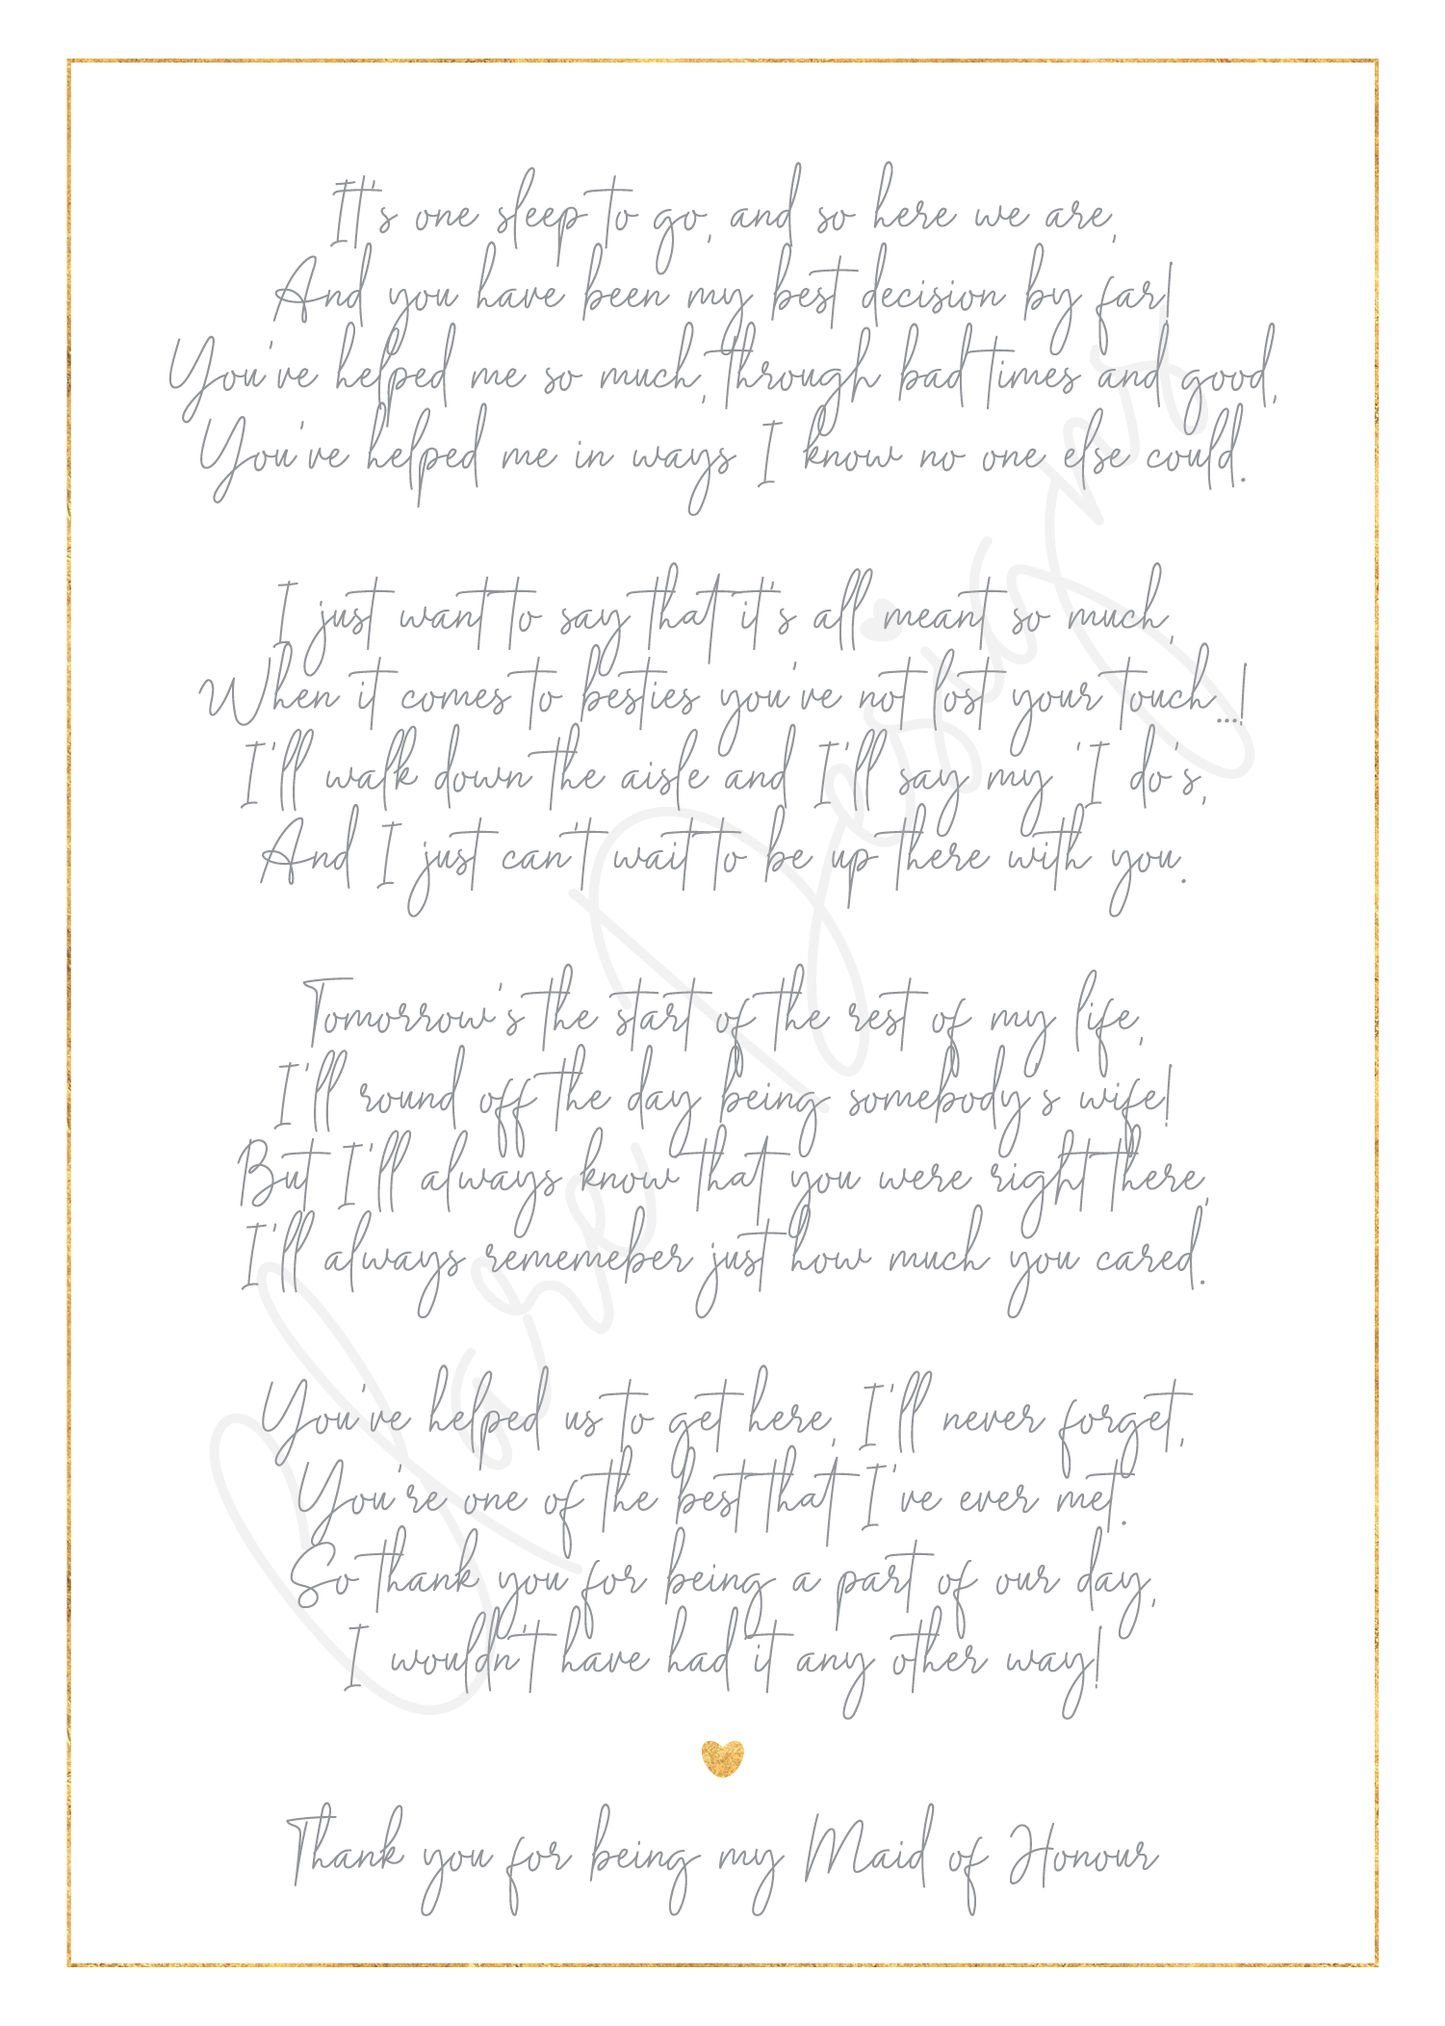 It's one sleep to go, and so here we are,
And you have been my best decision by far!
You've helped me so much, through bad times and good,
You've helped me in ways I know no one else could.
I just want to say that it's all meant so much,
When it comes to besties you've not lost your touch...!
I'll walk down the aisle and I'll say my 'I do's,
And I just can't wait to be up there with you.
Tomorrow's the start of the rest of my life,
I'll round off the day being somebody's wife!
But I'll always know that you were right there,
I'll always rememeber just how much you cared.
You've helped us to get here, I'll never forget,
You're one of the best that I've ever met.
So thank you for being a part of our day,
I wouldn't have had it any other way!
Thank you for being my Maid of Honour
Clare Designs